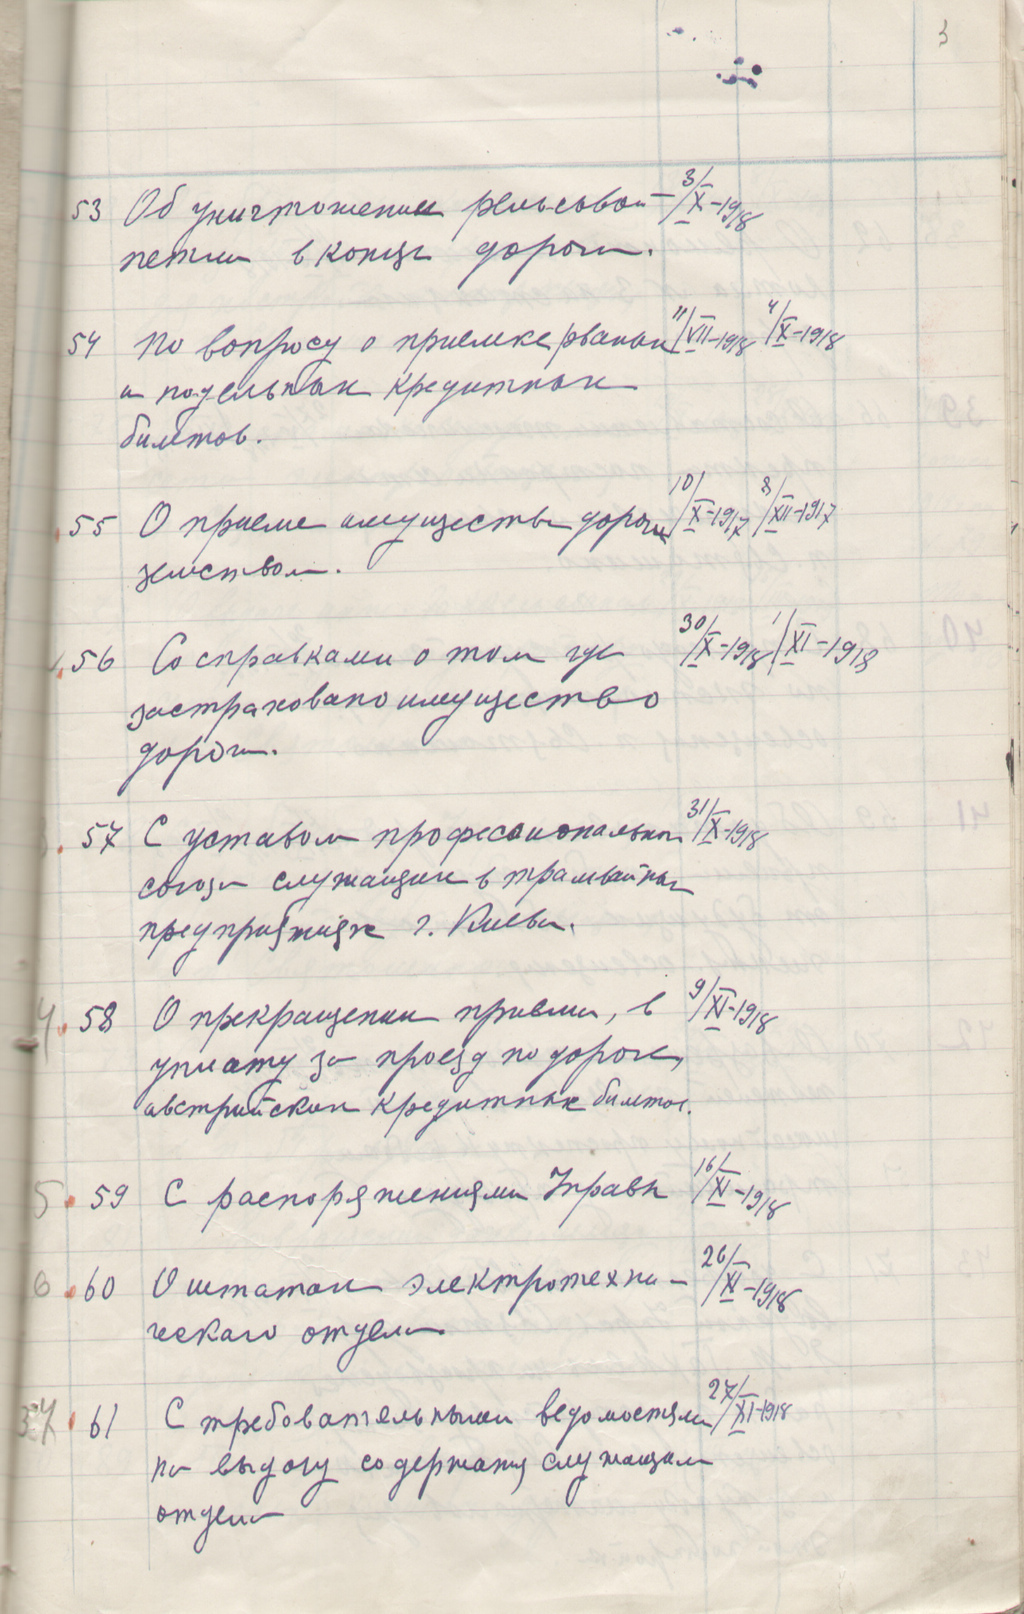 3
53 Об уничтожении рельсовой 3/X-1918
петли в конце дороги.
54 По вопросу о приемке рваных 11/VII-1918 4/X-1918
и подельных кредитных
билетов.
55 О приеме имущества дороги 10/X-1917 8/XII-1917
земством.
56 Со справками о том где 30/X-1918 1/XI-1918
застраховано имущество
дороги.
57 С уставом професионального 31/X-1918
союза служащих в трамвайных
предприятиях г. Киева.
4. 58 О прекращении приема, в 9/XI-1918
уплату за проезд по дороге,
австрийских кредитных билетов.
5. 59 С распоряжениями Управы 16/XI-1918
6. 60 О штатах электротехни- 26/XI-1918
ческаго отдела.
61 С требовательными ведомостями 27/XI-1918
на выдачу содержания служащим
отдела